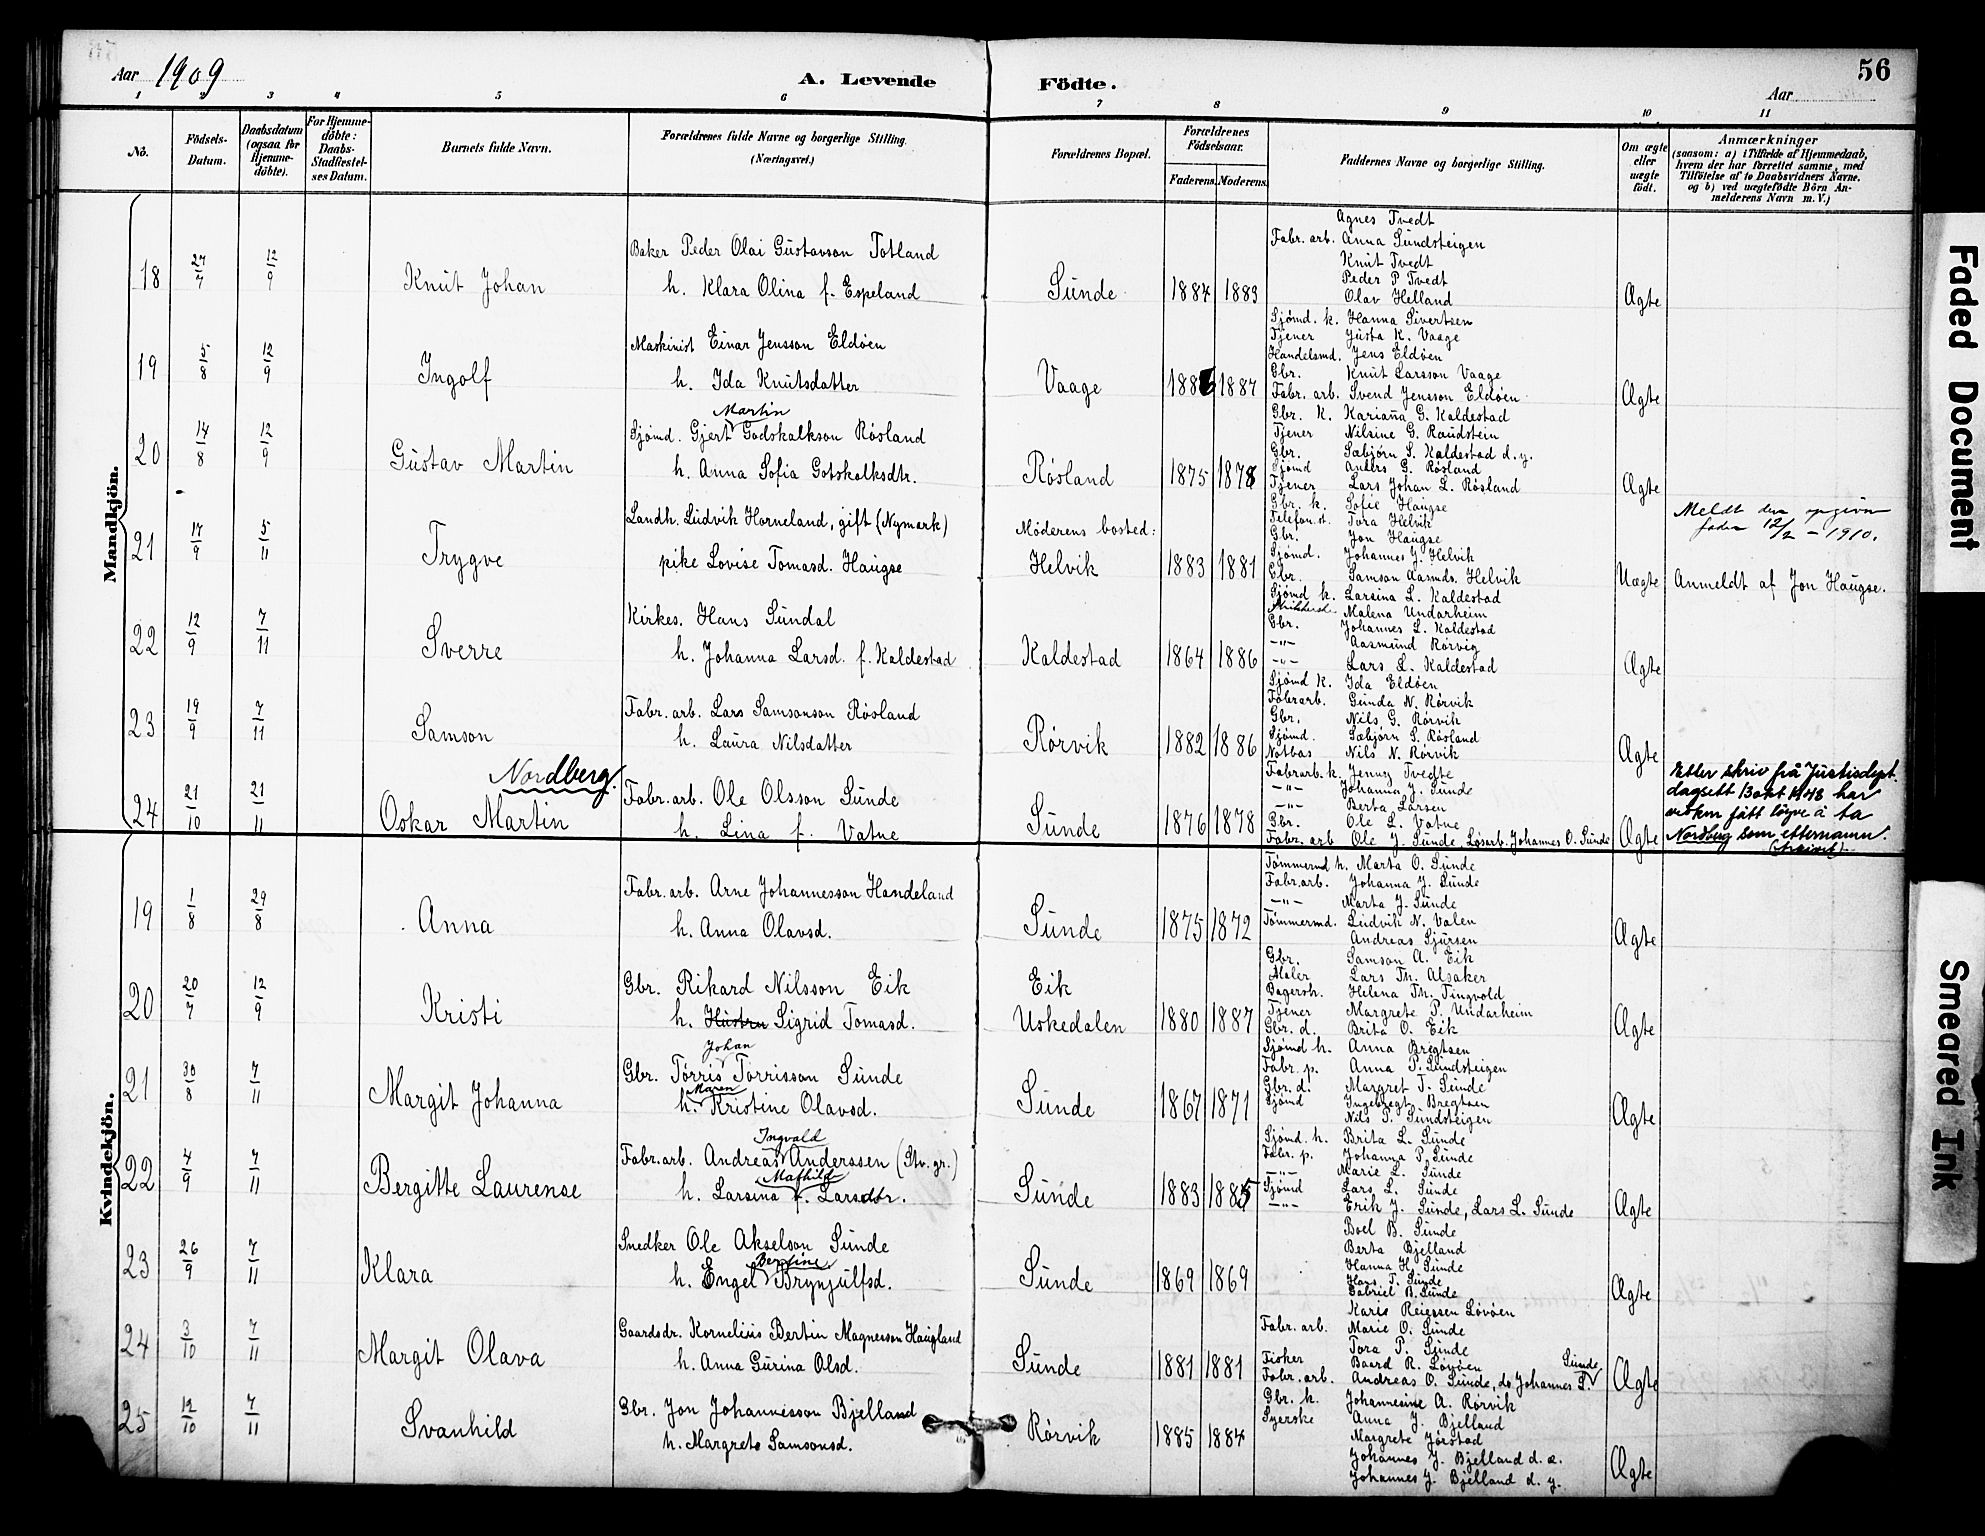 Aar 1909
A. Levende Födte.
56
Aar
1 2 3 4 5 6 7 8 9 10 11
No.
Födsels-Datum.
Daabsdatum (ogsaa for Hjemme-döbte).
For Hjemme-döbte: Daabs-Stadfæstel-ses Datum.
Barnets fulde Navn.
Forældrenes fulde Navne og borgerlige Stilling. (Næringsvei.)
Forældrenes Bopæl.
Forældrenes Födselsaar.
Faderens. Moderens.
Faddernes Navne og borgerlige Stilling.
Om ægte eller uægte födt.
Anmærkninger
(saasom: a) i Tilfælde af Hjemmedaab, hvem der har forrettet samme, med Tilföielse af to Daabsvidners Navne, og b) ved uægtefödte Börn Anmelderens Navn m. V.)
Mandkjön.
18 27/7 12/9 Knut Johan
Baker Peder Olai Gustavson Totland
h. Klara Olina f. Espeland
Sunde 1884 1883
Agnes Tvedt
Fabr. arb. Anna Sundsteigen
Knut Tvedt
Peder P Tvedt
Olav Helland
Ægte
19 5/8 12/9 Ingolf
Maskinist Einar Jensson Eldøen
h. Ida Knutsdatter
Vaage 1886 1887
Sjømd. k. Hanna Sivertsen
Tjener Justa K. Vaage
Handelsmd. Jens Eldøen
Gbr. Knut Larsson Vaage
Fabr. arb. Svend Jensson Eldøen
Ægte
20 14/8 12/9 Gustav Martin
Martin
Sjømd. Gjert Godskalkson Røsland
h. Anna Sofia Gotskalksdtr.
Røsland 1875 1878
Gbr. k. Kariana G. Kaldestad
Tjener Nilsine G. Raudstein
Gbr. Sæbjørn S. Kaldestad d. y.
Sjømd Anders G. Røsland
Tjener Lars Johan L. Røsland
Ægte
21 17/9 5/11 Trygve
Landh. Ludvik Horneland, gift (Nymark)
pike Lovise Tomasd. Haugse
Møderens bosted:
Helvik 1883 1881
Gbr. k. Sofie Haugse
Telefon.st. Tora Helvik
Gbr. Jon Haugse
Sjømd. Johannes J. Helvik
Gbr. Samson Aasmds. Helvik
Uægte
Meldt den opgivne
fader 12/2 - 1910.
Anmeldt af Jon Haugse.
22 12/9 7/11 Sverre
Kirkes. Hans Sundal
h. Johanna Larsd. f. Kaldestad
Kaldestad 1864 1886
Sjømd k. Larsina L. Kaldestad
Malena Undarheim
Gbr. Johannes L. Kaldestad
-"- Aasmund Rørvig
-"- Lars L. Kaldestad
Ægte
23 19/9 7/11 Samson
Fabr. arb. Lars Samsonson Røsland
h. Laura Nilsdatter
Rørvik 1882 1886
Sjømd k. Ida Eldøen
Fabrarb. Gunda N. Rørvik
Gbr. Nils G. Rørvik
Sjømd. Sæbjørn S. Røsland
Notbas Nils N. Rørvik
Ægte
Nordberg.
24 21/10 21/11 Oskar Martin
Fabr. arb. Ole Olsson Sunde
h. Lina f. Vatne
Sunde 1876 1878
Fabrarb. k. Jenny Tvedte
-"- Johanna J. Sunde
-"- Berta Larsen
Gbr. Ole L. Vatne
Fabr. arb Ole J. Sunde, Løsarb. Johannes O. Sunde
Ægte
Etter skriv frå Justisdept.
dagsett 13 okt 1948 har
vedkom fått løyve å ta
Nordberg som etternamn.
Kvindekjön.
19 1/8 29/8 Anna
Fabr. arb. Arne Johannesson Handeland
h. Anna Olavsd.
Sunde 1875 1872
Tømmermd h. Marta O. Sunde
Fabr. arb. Johanna J. Sunde
-"- Marta J. Sunde
Tømmermd. Ludvik N. Valen
Andreas Sjursen
Ægte
20 20/7 12/9 Kristi
Gbr. Rikard Nilsson Eik
h. Hustru Sigrid Tomasd.
Eik
Uskedalen 1880 1887
Gbr. Samson A. Eik
Maler Lars Th. Alsaker
Bagersh. Helena Th. Tingvold
Tjener Margrete P. Undarheim
Gbr. d. Brita O. Eik
Ægte
21 30/8 7/11 Margit Johanna
Johan
Gbr. Tørris Tørrisson Sunde
Maren
h. Kristine Olavsd.
Sunde 1867 1871
Sjømd h. Anna Bregtsen
Fabr. p. Anna P. Sundsteigen
Gbr. d. Margret T. Sunde
Sjømd Ingebregt Bregtsen
Nils P. Sundsteigen
Ægte
22 4/9 7/11 Bergitte Laurense
Ingvald
Fabr. arb. Andreas Anderssen (Stv. gr.)
Mathild
h. Larsina f. Larsdtr.
Sunde 1883 1885
Sjømd. h. Brita L. Sunde
Fabr. p. Johanna P. Sunde
-"- Marie L. Sunde
Sjømd Lars L. Sunde
-"- Erik J. Sunde, Lars L. Sunde
Ægte
23 26/9 7/11 Klara
Snedker Ole Akselson Sunde
Bertine
h. Engel Brynjulfsd.
Sunde 1869 1869
Boel B. Sunde
Berta Bjelland
Hanna H. Sunde
Hans T. Sunde
Gabriel B. Sunde
Ægte
24 3/10 7/11 Margit Olava
Gaardsdr. Kornelius Bertin Magnesson Haugland
h. Anna Gurina Olsd.
Sunde 1881 1881
Karis Reiersen Løvøen
Fabr. arb. Marie O. Sunde
Tora P. Sunde
Fisker Baard R. Løvøen
Sunde
Fabr. arb. Andreas O. Sunde, do Johannes S.
Ægte
25 12/10 7/11 Svanhild
Gbr. Jon Johannesson Bjelland
h. Margrete Samsonsd.
Rørvik 1885 1884
Gbr. k. Johannesine A. Rørvik
Syerske Anna J. Bjelland
Margrete Jørstad
Johannes J. Bjelland d. æ.
Johannes J. Bjelland d. y.
Ægte
Faded Document
Smeared Ink